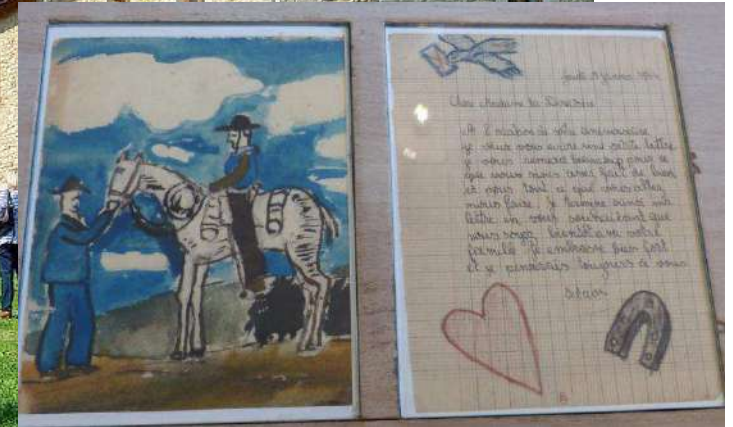 Chère Madame la Directrice
A l'occasion de votre anniversaire
je veux vous écrire une petite lettre
je vous remercie beaucoup pour ce
que vous nous avez fait de bien
et pour tout ce que vous allez
nous faire. Je termine ainsi ma
lettre en vous souhaitant que
vous soyez bientôt avec votre
famille. Je embrasse bien fort
et je penserais toujours à vous